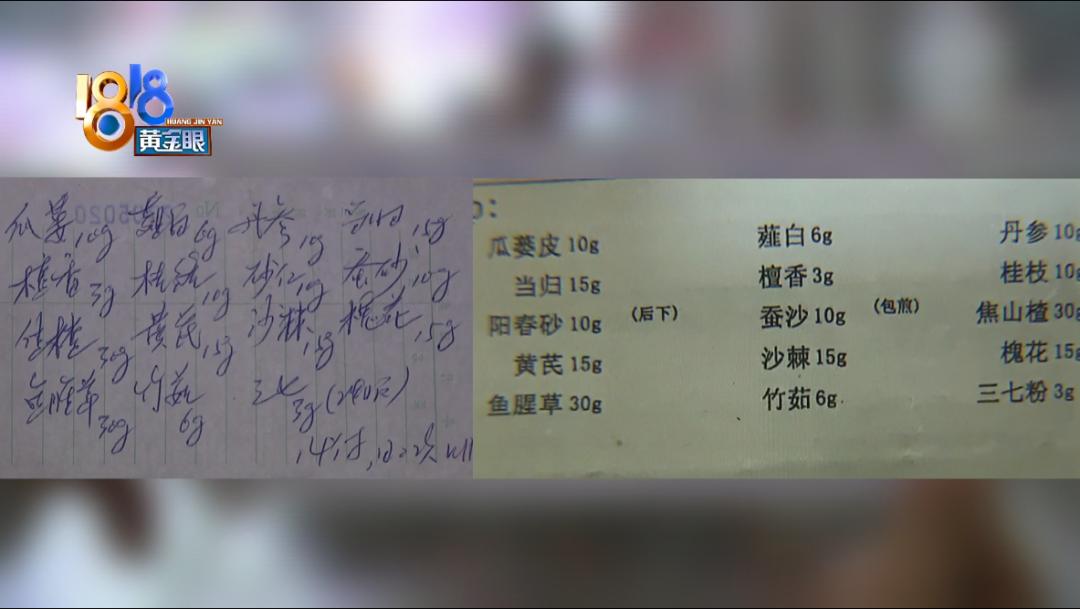 1818
HUANG JIN YAN
黄金眼
瓜蒌10g 薤白6g 丹参10g 当归15g
檀香3g 桂枝10g 砂仁10g 蚕砂10g
佳楂30g 黄芪15g 沙棘15g 槐花15g
鱼腥草30g 竹茹6g 三七3g
14付,1日2次
瓜蒌皮 10g 薤白 6g 丹参 10g
当归 15g 檀香 3g 桂枝 10g
阳春砂 10g (后下) 蚕沙 10g (包煎) 焦山楂 30g
黄芪 15g 沙棘 15g 槐花 15g
鱼腥草 30g 竹茹 6g 三七粉 3g